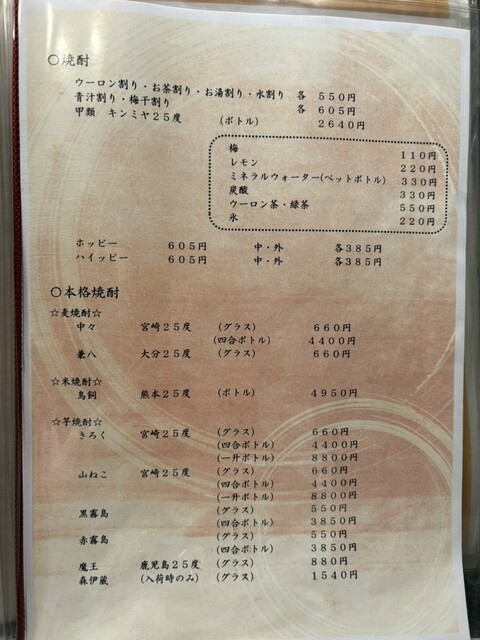 ○焼酎
ウーロン割り・お茶割り・お湯割り・水割り 各 550円
青汁割り・梅干割り 各 605円
甲類 キンミヤ25度 (ボトル) 2640円
梅 110円
レモン 220円
ミネラルウォーター(ペットボトル) 330円
炭酸 330円
ウーロン茶・緑茶 550円
氷 220円
ホッピー 605円 中・外 各385円
ハイッピー 605円 中・外 各385円
○本格焼酎
☆麦焼酎☆
中々 宮崎25度 (グラス) 660円
(四合ボトル) 4400円
兼八 大分25度 (グラス) 660円
☆米焼酎☆
鳥飼 熊本25度 (ボトル) 4950円
☆芋焼酎☆
きろく 宮崎25度 (グラス) 660円
(四合ボトル) 4400円
(一升ボトル) 8800円
山ねこ 宮崎25度 (グラス) 660円
(四合ボトル) 4400円
(一升ボトル) 8800円
黒霧島 (グラス) 550円
(四合ボトル) 3850円
赤霧島 (グラス) 550円
(四合ボトル) 3850円
魔王 鹿児島25度 (グラス) 880円
森伊蔵 (入荷時のみ) (グラス) 1540円